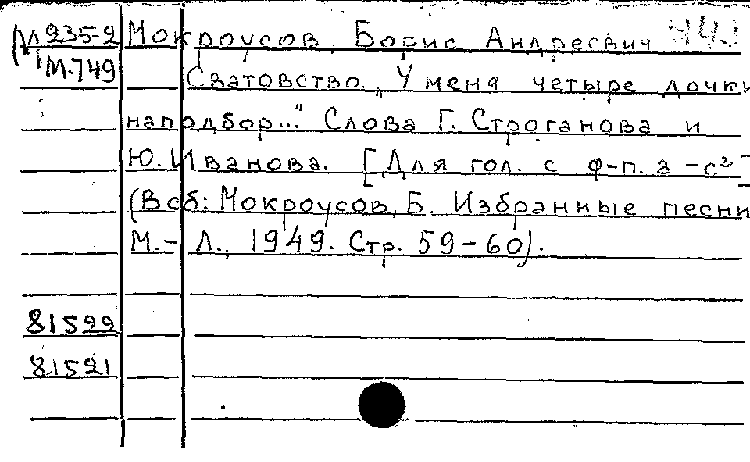 М 235-2 Мокроусов, Борис Андреевич
М-749 Сватовство. "У меня четыре дочки
наподбор..." Слова Г. Строганова и
Ю. Иванова. [Для гол. с ф-п. а - c²]
(В сб: Мокроусов, Б. Избранные песни
М. - Л., 1949. Стр. 59-60).
81599
81521